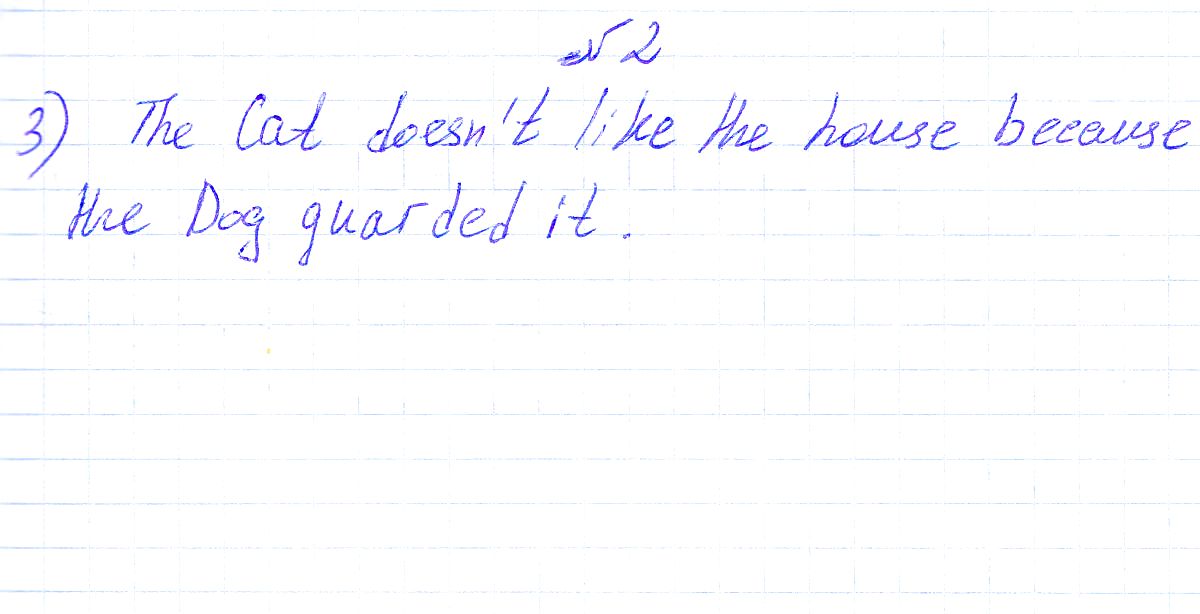 №2
3) The Cat doesn't like the house because
the Dog guarded it.